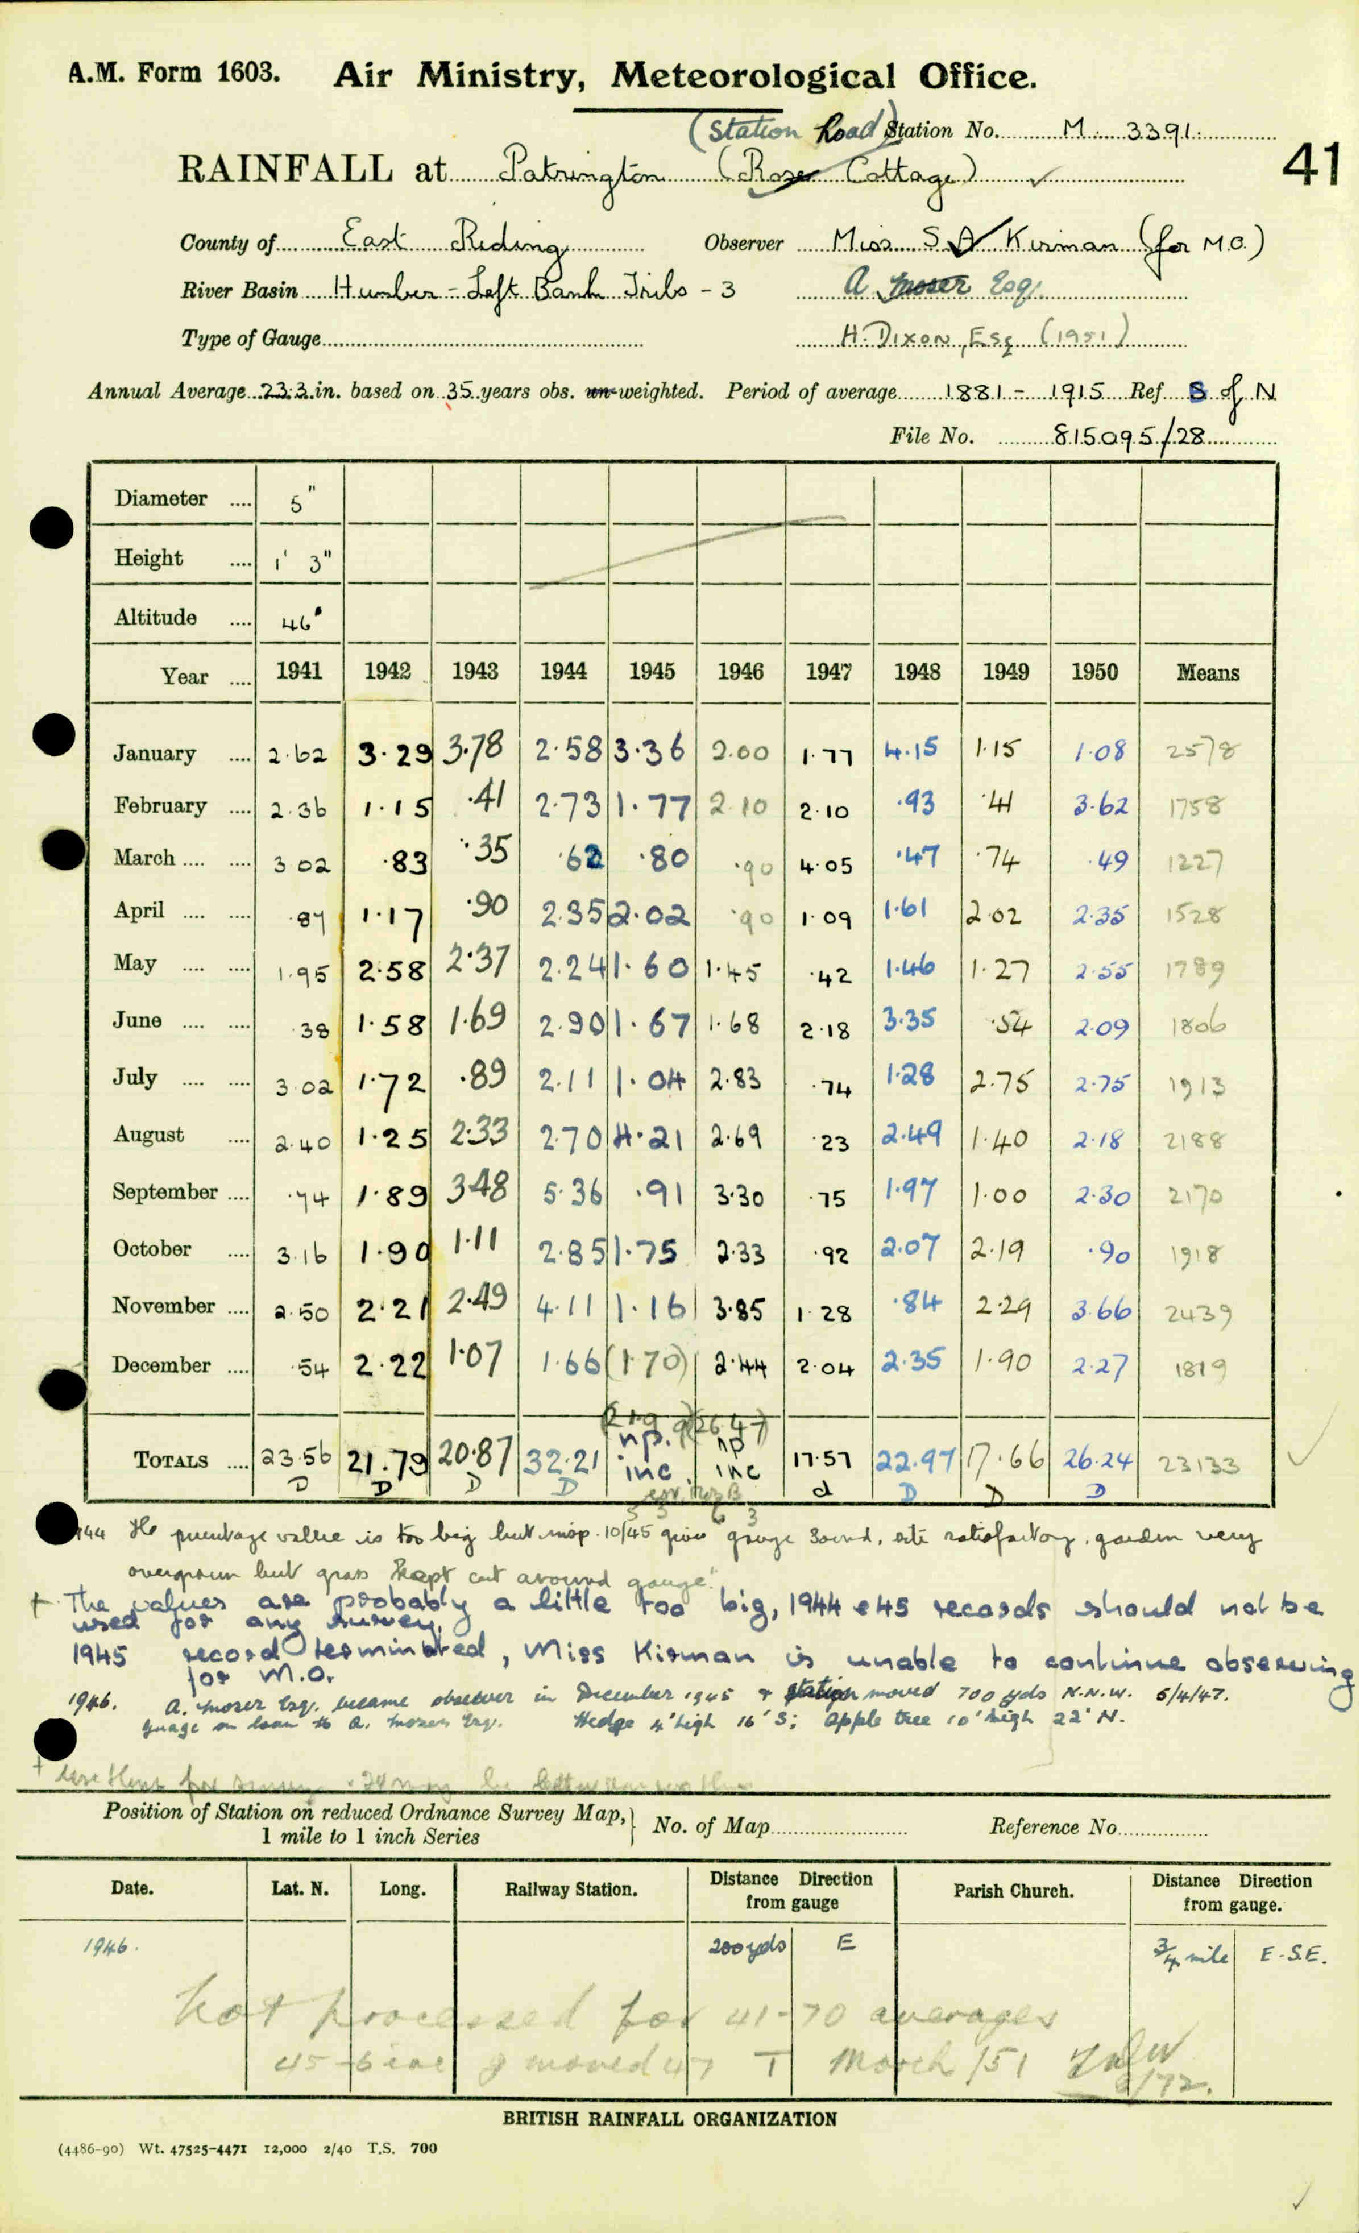 A.M. Form 1603. Air Ministry, Meteorological Office.
(Station Road) Station No. M. 3391.
41
RAINFALL at Patrington (Rose Cottage) ✓
County of East Riding Observer Miss S.A Kirman (for M.O.)
River Basin Humber - Left Bank Tribs - 3 A Moser Esq.
Type of Gauge H. DIXON, Esq (1951)
Annual Average 23.3 in. based on 35 years obs. un-weighted. Period of average 1881 - 1915 Ref. S of N
File No. 815095/28
Diameter .... 5"
Height .... 1' 3"
Altitude .... 46'
Year .... 1941 1942 1943 1944 1945 1946 1947 1948 1949 1950 Means
January .... 2.62 3.29 3.78 2.58 3.36 2.00 1.77 4.15 1.15 1.08 2578
February .... 2.36 1.15 .41 2.73 1.77 2.10 2.10 .93 .41 3.62 1758
March .... .... 3.02 .83 .35 .62 .80 .90 4.05 .47 .74 .49 1227
April .... .... .87 1.17 .90 2.35 2.02 .90 1.09 1.61 2.02 2.35 1528
May .... .... 1.95 2.58 2.37 2.24 1.60 1.45 .42 1.46 1.27 2.55 1789
June .... .... .38 1.58 1.69 2.90 1.67 1.68 2.18 3.35 .54 2.09 1806
July .... .... 3.02 1.72 .89 2.11 1.04 2.83 .74 1.28 2.75 2.75 1913
August .... 2.40 1.25 2.33 2.70 4.21 2.69 .23 2.49 1.40 2.18 2188
September .... .74 1.89 3.48 5.36 .91 3.30 .75 1.97 1.00 2.30 2170
October .... 3.16 1.90 1.11 2.85 1.75 2.33 .92 2.07 2.19 .90 1918
November .... 2.50 2.21 2.49 4.11 1.16 3.85 1.28 .84 2.29 3.66 2439
December .... .54 2.22 1.07 1.66 (1.70) 2.44 2.04 2.35 1.90 2.27 1819
(21.99) (26.47)
TOTALS .... 23.56 21.79 20.87 32.21 np. inc. np inc 17.57 22.97 17.66 26.24 23133
D D D D d D D D
1944 The percentage value is too big but insp. 10/45 gives gauge sound, site satisfactory, garden very
overgrown but grass "kept cut around gauge".
† The values are probably a little too big, 1944 & 45 records should not be
used for any survey.
1945 record terminated, Miss Kirman is unable to continue observing
for M.O.
1946. A. Moser Esq. became observer in December 1945 & station moved 700 yds N.N.W. 5/4/47.
Guage on loan to A. Moser Esq. Hedge 4' high 16' S; apple tree 10' high 22' N.
Position of Station on reduced Ordnance Survey Map, 1 mile to 1 inch Series } No. of Map Reference No.
Date. Lat. N. Long. Railway Station. Distance Direction from gauge Parish Church. Distance Direction from gauge.
1946. 200 yds E 3/4 mile E.S.E.
Not processed for 41-70 averages
45-6 inc g moved 47 T March /51
/72.
BRITISH RAINFALL ORGANIZATION
(4486-90) Wt. 47525-4471 12,000 2/40 T.S. 700